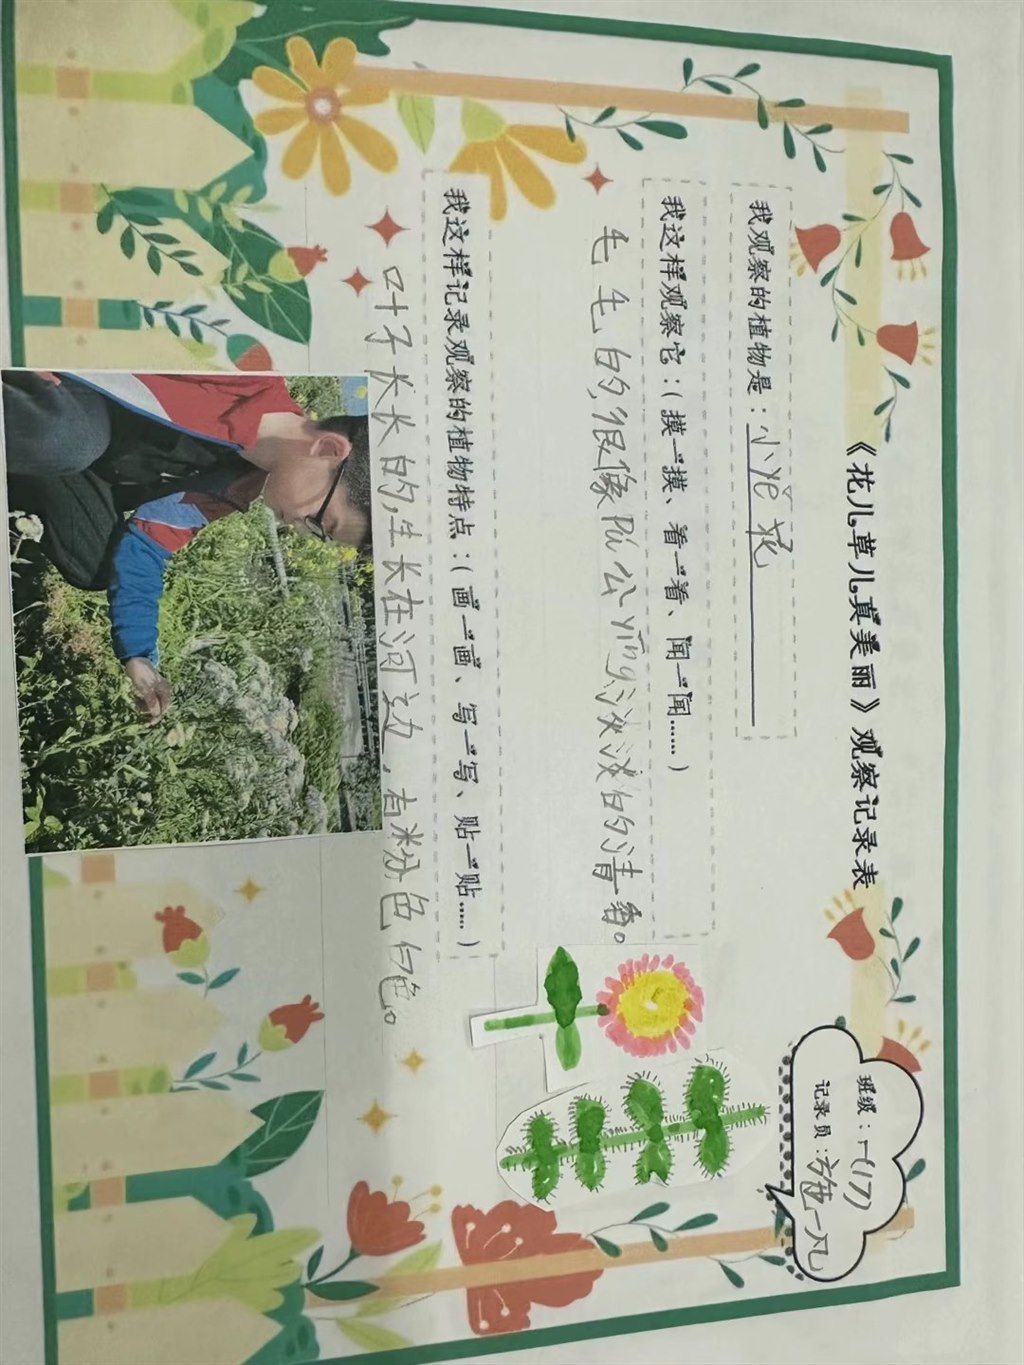 《花儿草儿真美丽》观察记录表
班级：一(17)
记录员：施一凡
我观察的植物是：小yě花
我这样观察它：（摸一摸、看一看、闻一闻……）
毛毛的,很像Pú公yīng淡淡的清香。
我这样记录观察的植物特点：（画一画、写一写、贴一贴……）
叶子长长的,生长在河边，有粉色白色。